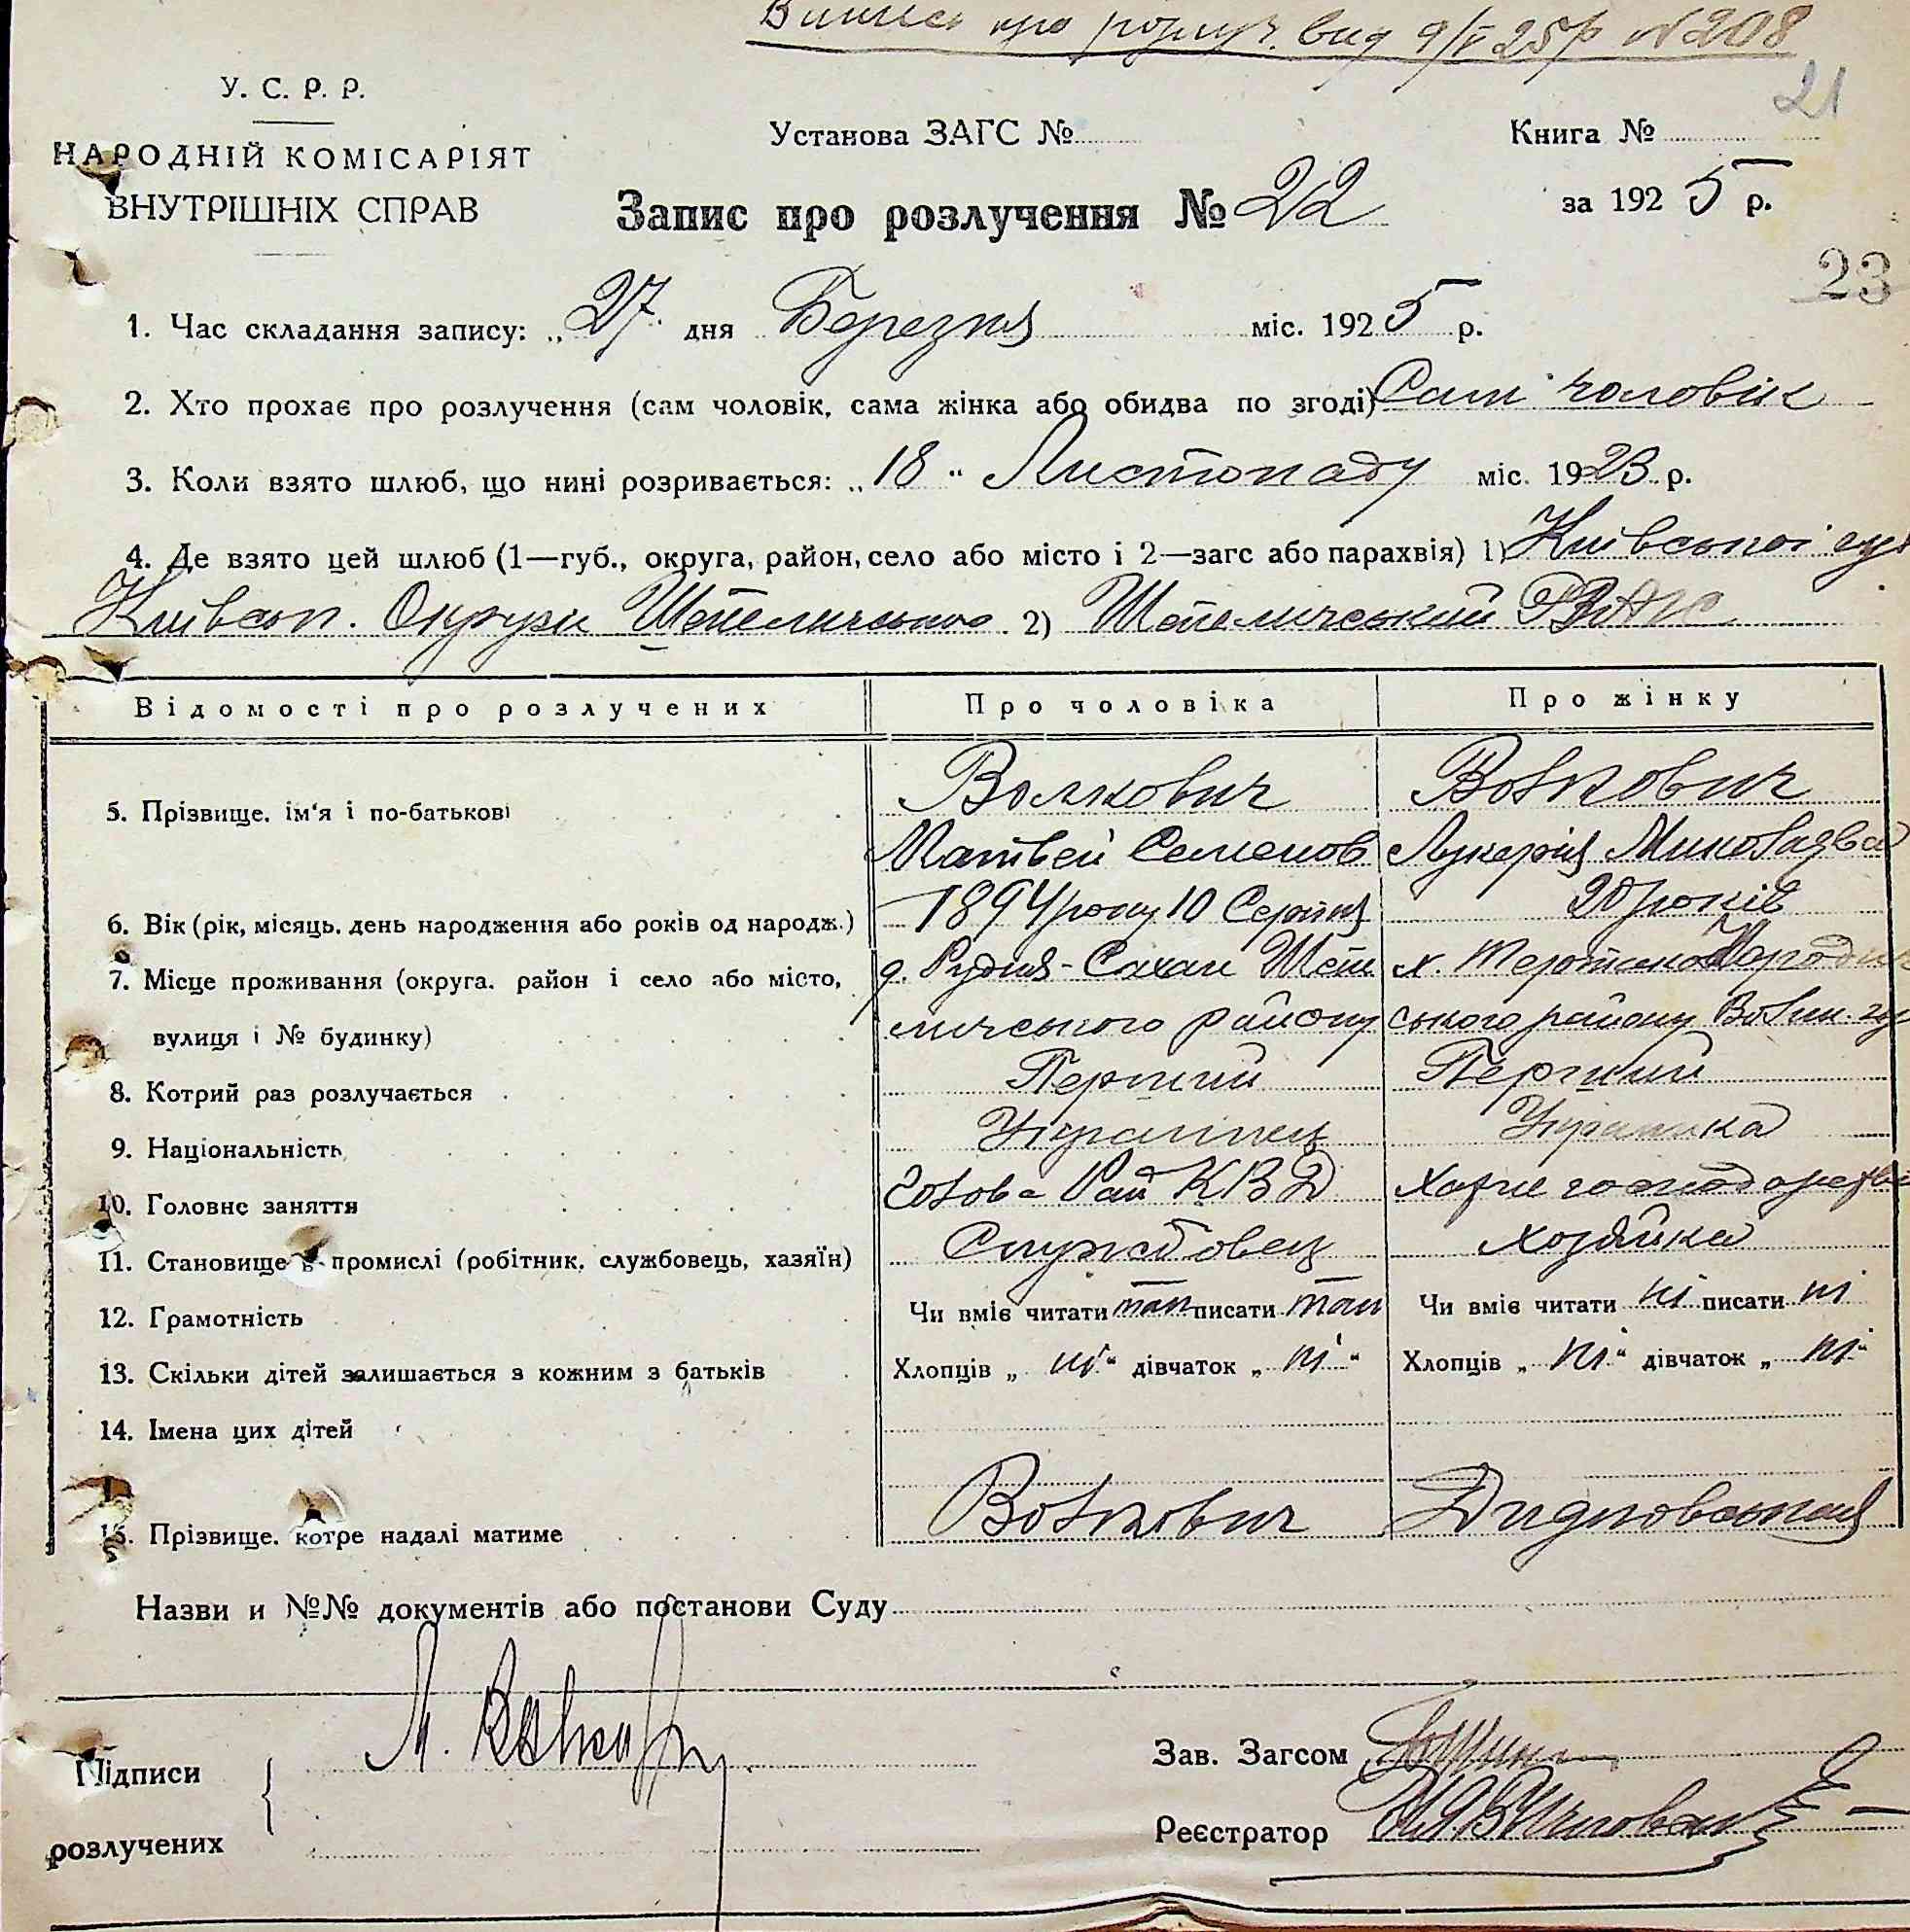 Випис про розлуч. вид 9/V 25 р N 208
21
У. С. Р. Р.
НАРОДНІЙ КОМІСАРІЯТ
ВНУТРІШНІХ СПРАВ
Установа ЗАГС №
Книга №
за 1925 р.
Запис про розлучення № 22
23
1. Час складання запису: „ 27 дня Березня міс. 1925 р.
2. Хто прохає про розлучення (сам чоловік, сама жінка або обидва по згоді) Сам чоловік
3. Коли взято шлюб, що нині розривається: „ 18 " Листопаду міс. 1923 р.
4. Де взято цей шлюб (1—губ., округа, район, село або місто і 2—загс або парахвія) 1) Київської губ
Київськ. Округи Шепелицького 2) Шепелицький
Відомості про розлучених Про чоловіка Про жінку
5. Прізвище, ім'я і по-батькові Волкович Вовкович
Матвей Семенов Лукерія Миколаєва
6. Вік (рік, місяць, день народження або років од народж.) 1894 року 10 Серпня 20 років
7. Місце проживання (округа, район і село або місто, д. Рудня-Сахан Шепе х. Народич
вулиця і № будинку) лицького району ського району Волин. гу
8. Котрий раз розлучається Перший Перший
9. Національність Українец Українка
10. Головне заняття Голова Рай КВД Хатне господарство
11. Становище в промислі (робітник, службовець, хазяїн) Службовец хозяйка
12. Грамотність Чи вміє читати так писати так Чи вміє читати ні писати ні
13. Скільки дітей залишається з кожним з батьків Хлопців „ ні " дівчаток „ ні " Хлопців „ ні " дівчаток „ ні "
14. Імена цих дітей
15. Прізвище, котре надалі матиме Вовкович Дидковська
Назви и №№ документів або постанови Суду
Підписи М. Вовкович
розлучених
Зав. Загсом
Реєстратор